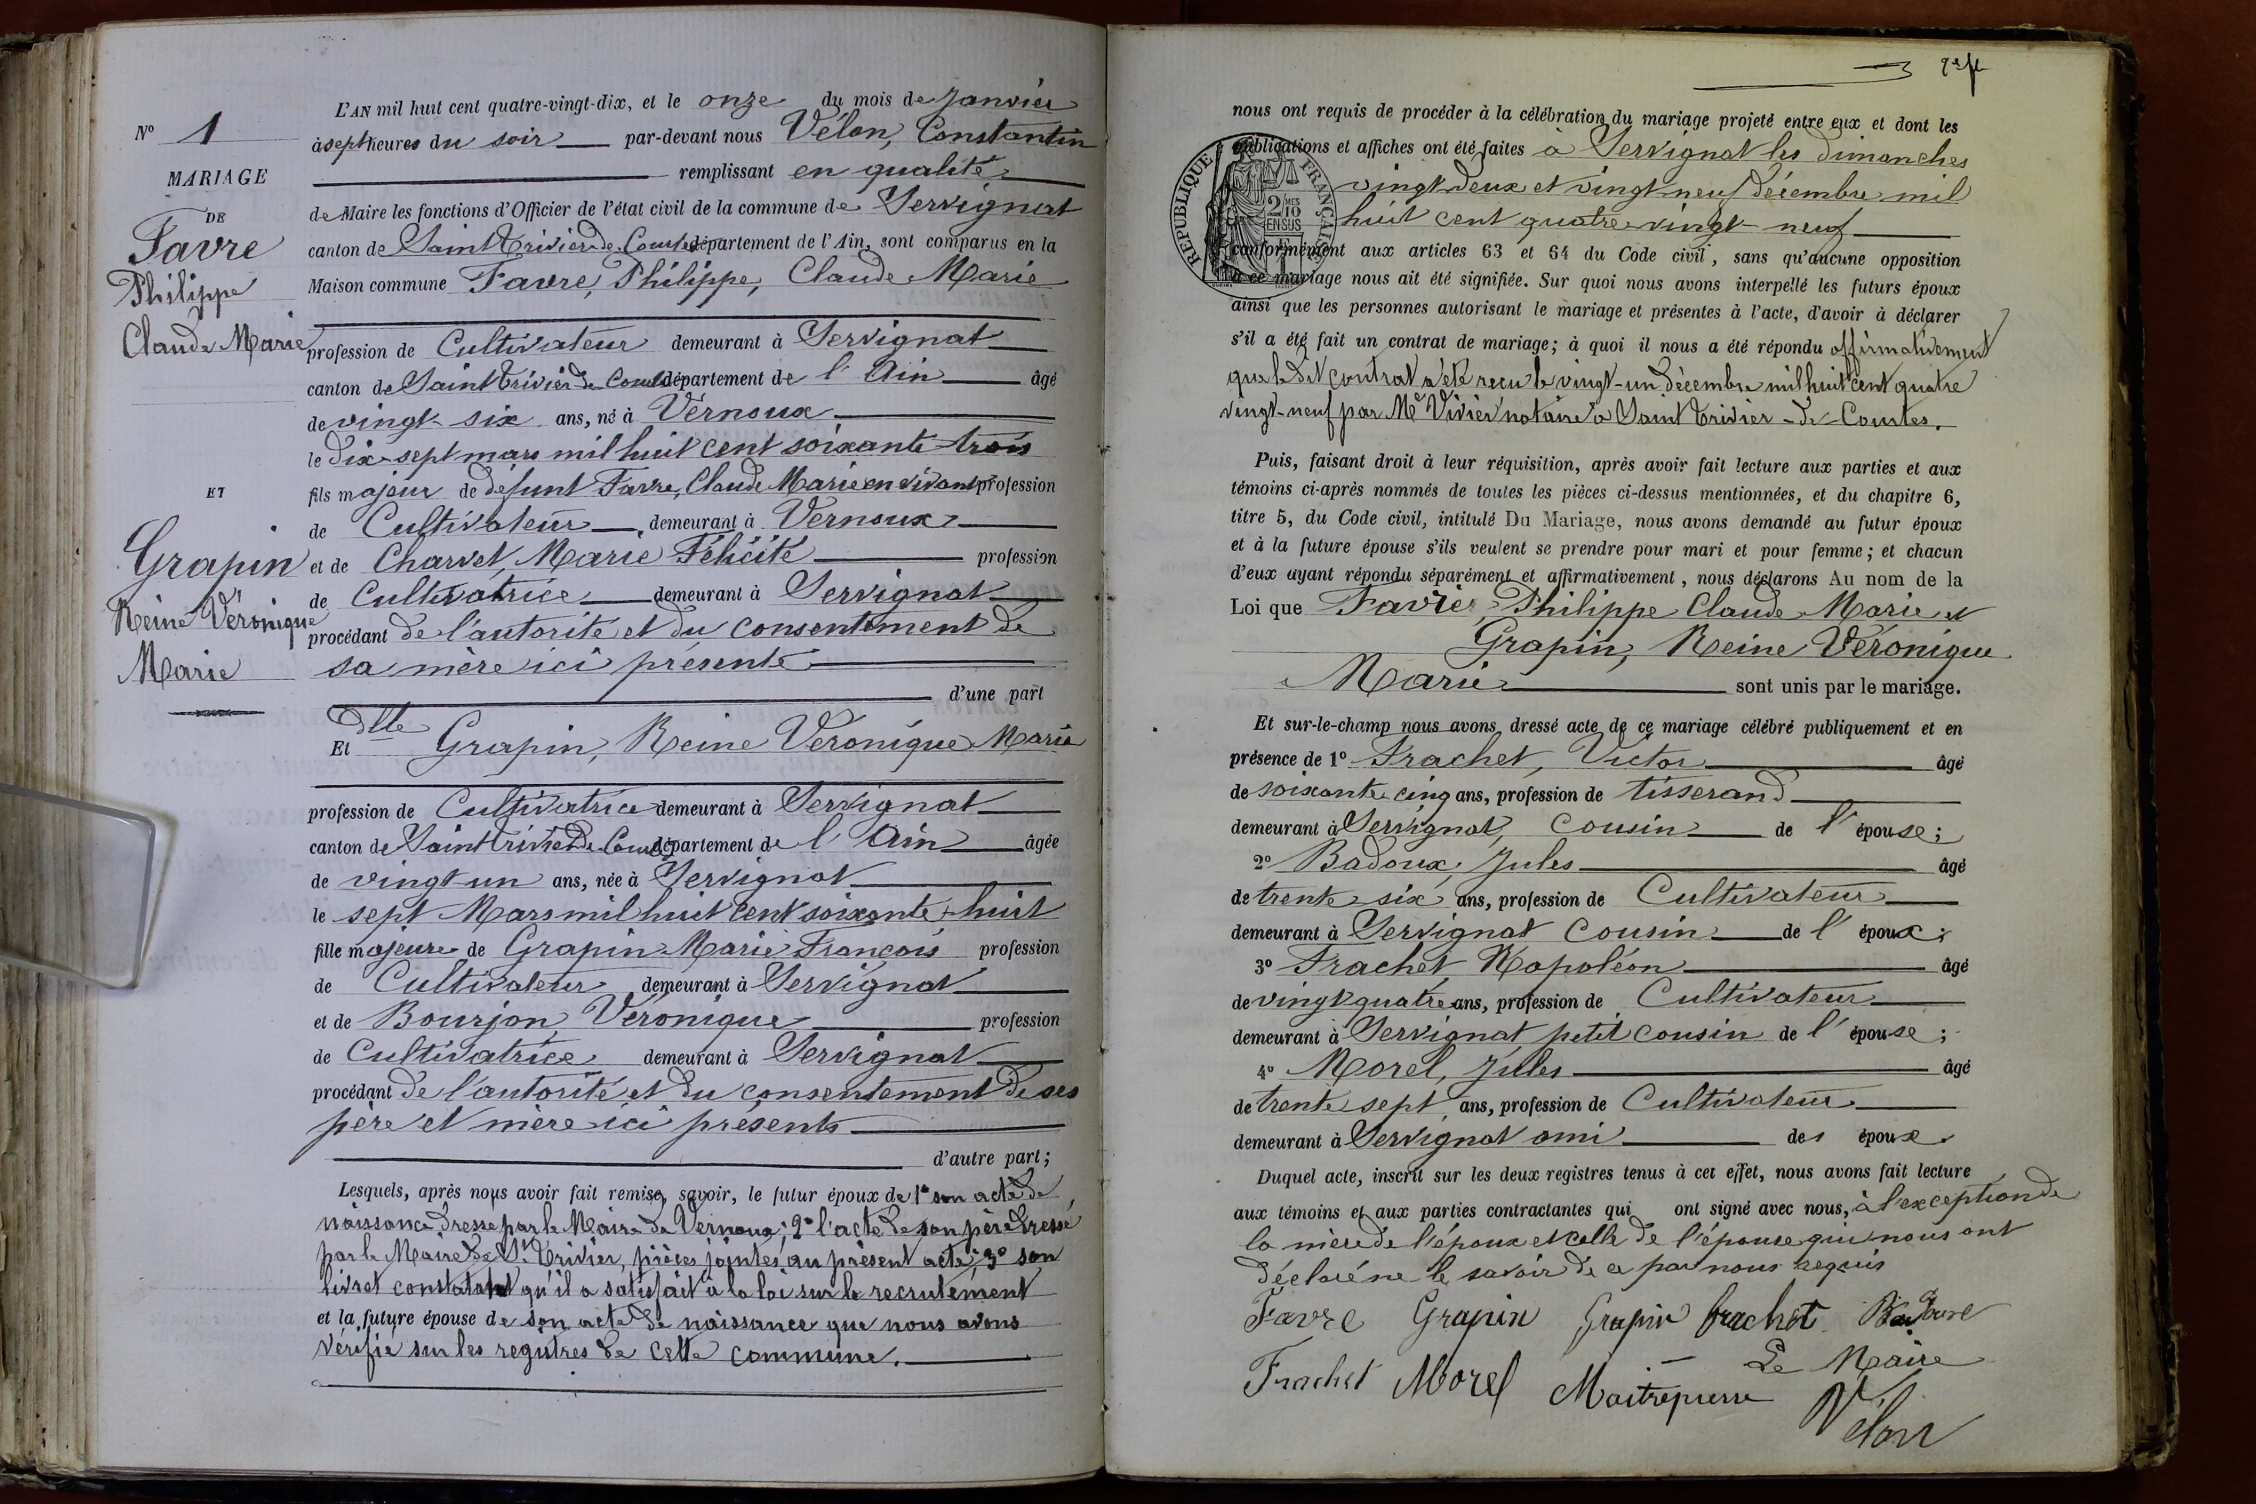 L'AN mil huit cent quatre-vingt-dix, et le onze du mois de Janvier
N° 1
à sept heures du soir par-devant nous Vélon, Constantin
MARIAGE
remplissant en qualité
DE
de Maire les fonctions d'Officier de l'état civil de la commune de Servignat
Favre
canton de Saint Trivier de Courtes département de l'Ain, sont comparus en la
Philippe
Maison commune Favre, Philippe, Claude Marie
Claude Marie
profession de Cultivateur demeurant à Servignat
canton de Saint Trivier de Courtes département de l'Ain âgé
de vingt-six ans, né à Vernoux
le dix-sept mars mil huit cent soixante-trois
ET
fils majeur de défunt Favre, Claude Marie en vivant profession
de Cultivateur demeurant à Vernoux
Grapin
et de Charvet, Marie Félicité profession
de Cultivatrice demeurant à Servignat
Reine Véronique
procédant de l'autorité et du consentement de
Marie
sa mère ici présente
d'une part
Et dlle Grapin, Reine Véronique Marie
profession de Cultivatrice demeurant à Servignat
canton de Saint Trivier de Courtes département de l'Ain âgée
de vingt-un ans, née à Servignat
le sept Mars mil huit cent soixante-huit
fille majeure de Grapin Marie François profession
de Cultivateur demeurant à Servignat
et de Bourjon Véronique profession
de Cultivatrice demeurant à Servignat
procédant de l'autorité et du consentement de ses
père et mère ici présents
d'autre part;
Lesquels, après nous avoir fait remise, savoir, le futur époux de 1° son acte de
naissance dressé par le Maire de Vernoux; 2° l'acte de son père dressé
par le Maire de St Trivier, pièces jointes au présent acte; 3° son
livret constatant qu'il a satisfait à la loi sur le recrutement
et la future épouse de son acte de naissance que nous avons
vérifié sur les registres de cette commune.
nous ont requis de procéder à la célébration du mariage projeté entre eux et dont les
publications et affiches ont été faites à Servignat les dimanches
vingt-deux et vingt-neuf décembre mil
huit cent quatre-vingt-neuf
RÉPUBLIQUE FRANÇAISE
2/10 MES
EN SUS
conformément aux articles 63 et 64 du Code civil, sans qu'aucune opposition
à ce mariage nous ait été signifiée. Sur quoi nous avons interpellé les futurs époux
ainsi que les personnes autorisant le mariage et présentes à l'acte, d'avoir à déclarer
s'il a été fait un contrat de mariage; à quoi il nous a été répondu affirmativement
que le dit contrat a été reçu le vingt-un décembre mil huit cent quatre
vingt-neuf par Me Vivier notaire à Saint Trivier-de-Courtes.
Puis, faisant droit à leur réquisition, après avoir fait lecture aux parties et aux
témoins ci-après nommés de toutes les pièces ci-dessus mentionnées, et du chapitre 6,
titre 5, du Code civil, intitulé Du Mariage, nous avons demandé au futur époux
et à la future épouse s'ils veulent se prendre pour mari et pour femme; et chacun
d'eux ayant répondu séparément et affirmativement, nous déclarons Au nom de la
Loi que Favre, Philippe Claude Marie et
Grapin, Reine Véronique
Marie sont unis par le mariage.
Et sur-le-champ nous avons dressé acte de ce mariage célébré publiquement et en
présence de 1° Frachet, Victor âgé
de soixante cinq ans, profession de tisserand
demeurant à Servignat, cousin de l'épouse;
2° Badoux, Jules âgé
de trente six ans, profession de Cultivateur
demeurant à Servignat Cousin de l'époux;
3° Frachet Napoléon âgé
de vingt quatre ans, profession de Cultivateur
demeurant à Servignat petit cousin de l'épouse;
4° Morel, Jules âgé
de trente sept ans, profession de Cultivateur
demeurant à Servignat ami des époux.
Duquel acte, inscrit sur les deux registres tenus à cet effet, nous avons fait lecture
aux témoins et aux parties contractantes qui ont signé avec nous, à l'exception de
la mère de l'époux et celle de l'épouse qui nous ont
déclaré ne le savoir de ce par nous requis
Favre Grapin Grapin frachet
Le Maire
Frachet Morel Maitrepierre
Vélon